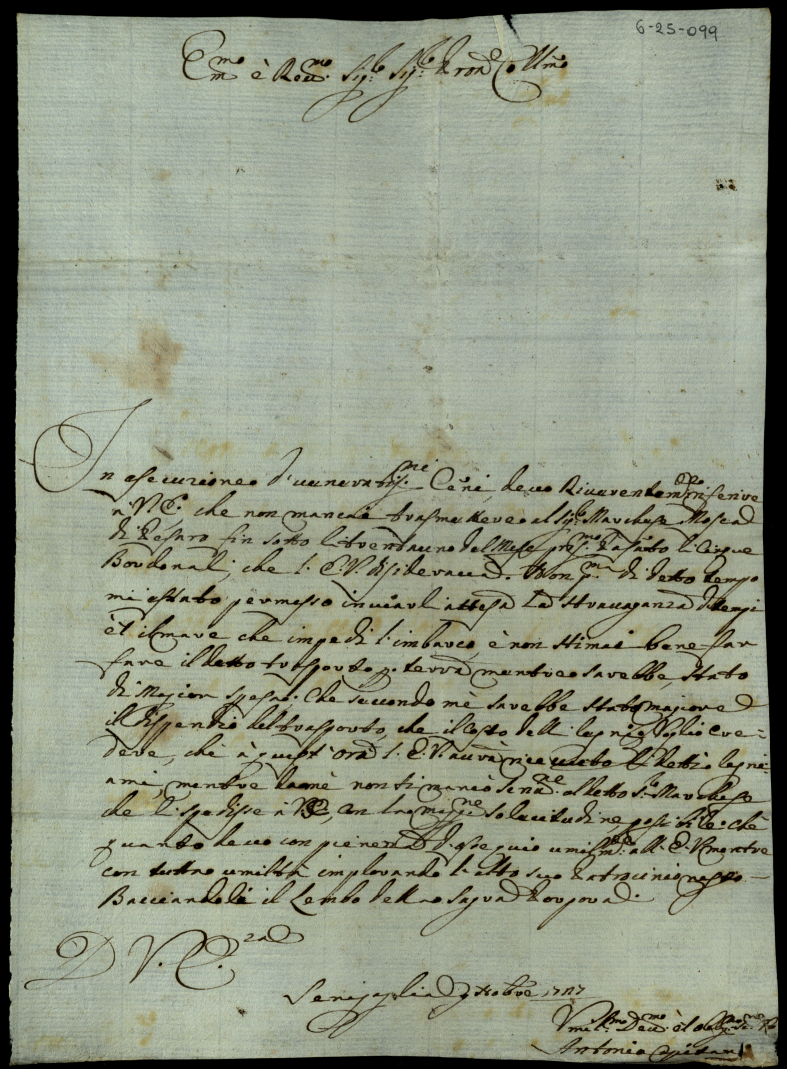 6-25-099
Emo è Revmo Sigre Sigre Pron Col Umo
In esecuzione d' veneratissmi Ceñi, devo Riverentemte riferire
a V. E. che non mancai trasmettere al Sigr Marchese Mosca
di Pesaro fin sotto li trentauno del Mese prosmo Pasato li Cinque
Bordonali, che l' E. V. desiderava. Non pma di detto tempo
mi è stato permesso inviarli attesa la stravaganza di tempi
et il mare che impedì l'imbarco, è non stimai bene far
fare il detto trasporto p terra mentre sarebbe stato
di Magior spesa. Che secondo mè sarebbe stato magiore
il dispendio del trasporto, che il costo delli legni. Voglio cre=
dere, che à quest' ora l' E. V. aurà riceuuto li detti legni=
ami, mentre da mè non si mancò al detto Sr Marchese
che li spedisse à V. E., con la magre solecitudine posibile. chè
quanto devo con pienezza d' ossequio umilmte all' E. V. mentre
con tutta umiltà implorando l' alto suo Patrocinio resto
Bacciandole il Lembo della Sagra Porpora.
D V. E.za
Senigaglia 9tobre 1717
Umilmo Devmo et obligmo Sre
Antonio